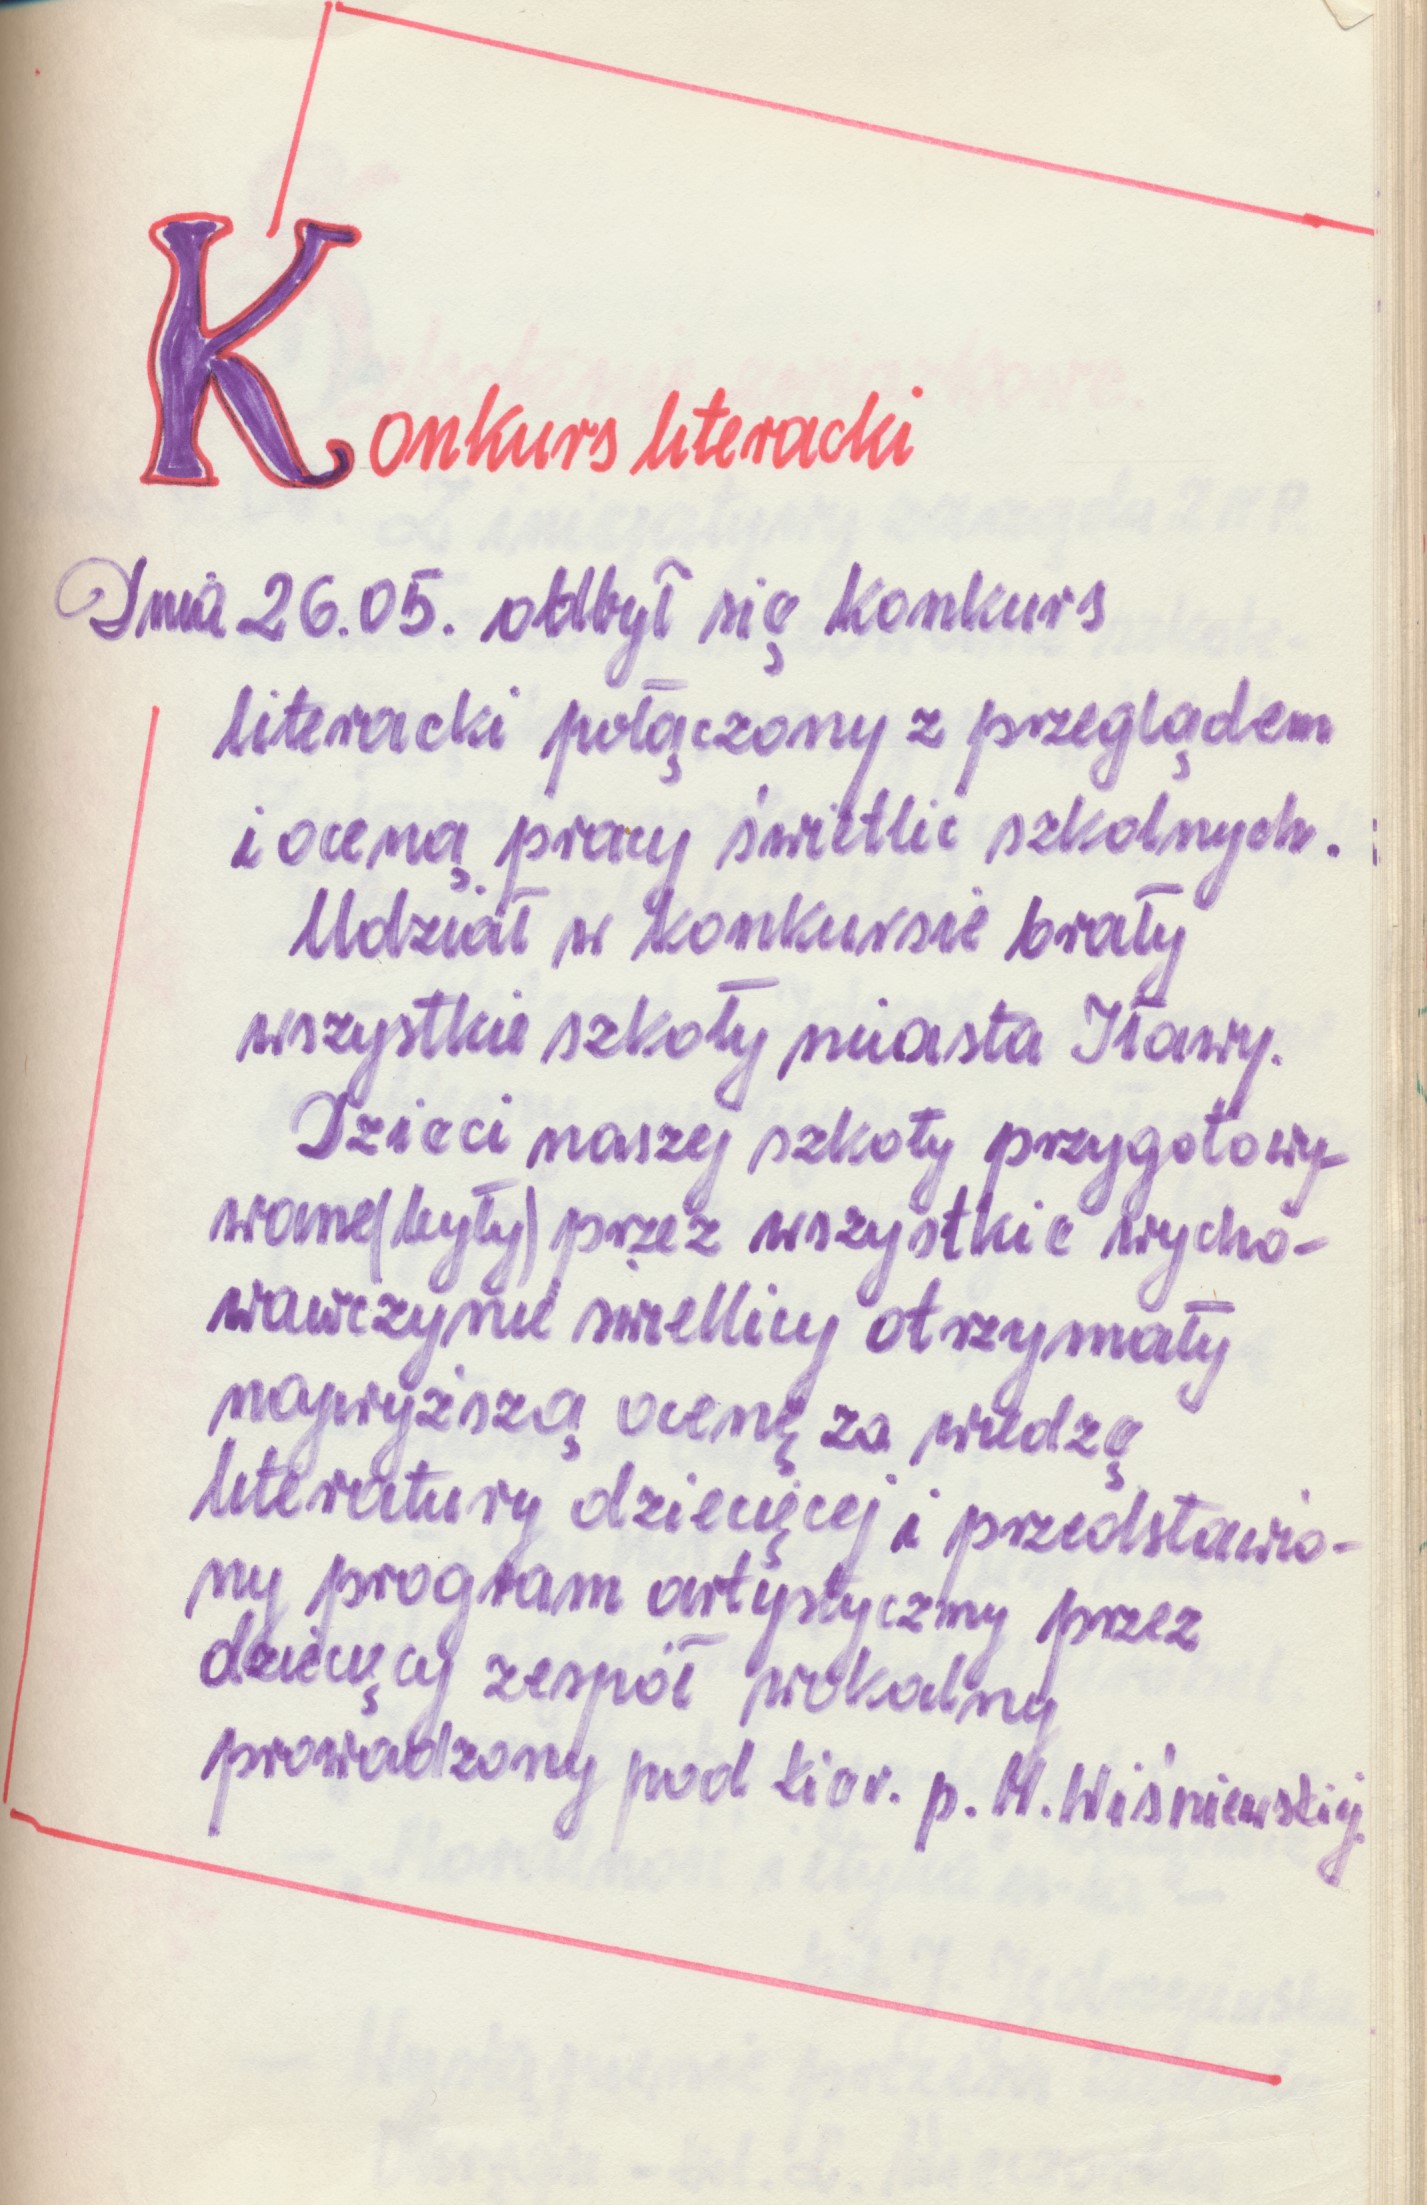 Konkurs literacki
Dnia 26.05. odbył się konkurs
literacki połączony z przeglądem
i oceną pracy świetlic szkolnych.
Udział w konkursie brały
wszystkie szkoły miasta Iławy.
Dzieci naszej szkoły przygotowy-
wane (były) przez wszystkie wycho-
wawczynie świetlicy otrzymały
najwyższą ocenę za wiedzę
literatury dziecięcej i przedstawio-
ny program artystyczny przez
dziecięcy zespół wokalny
prowadzony pod kier. p. M. Wiśniewskiej.